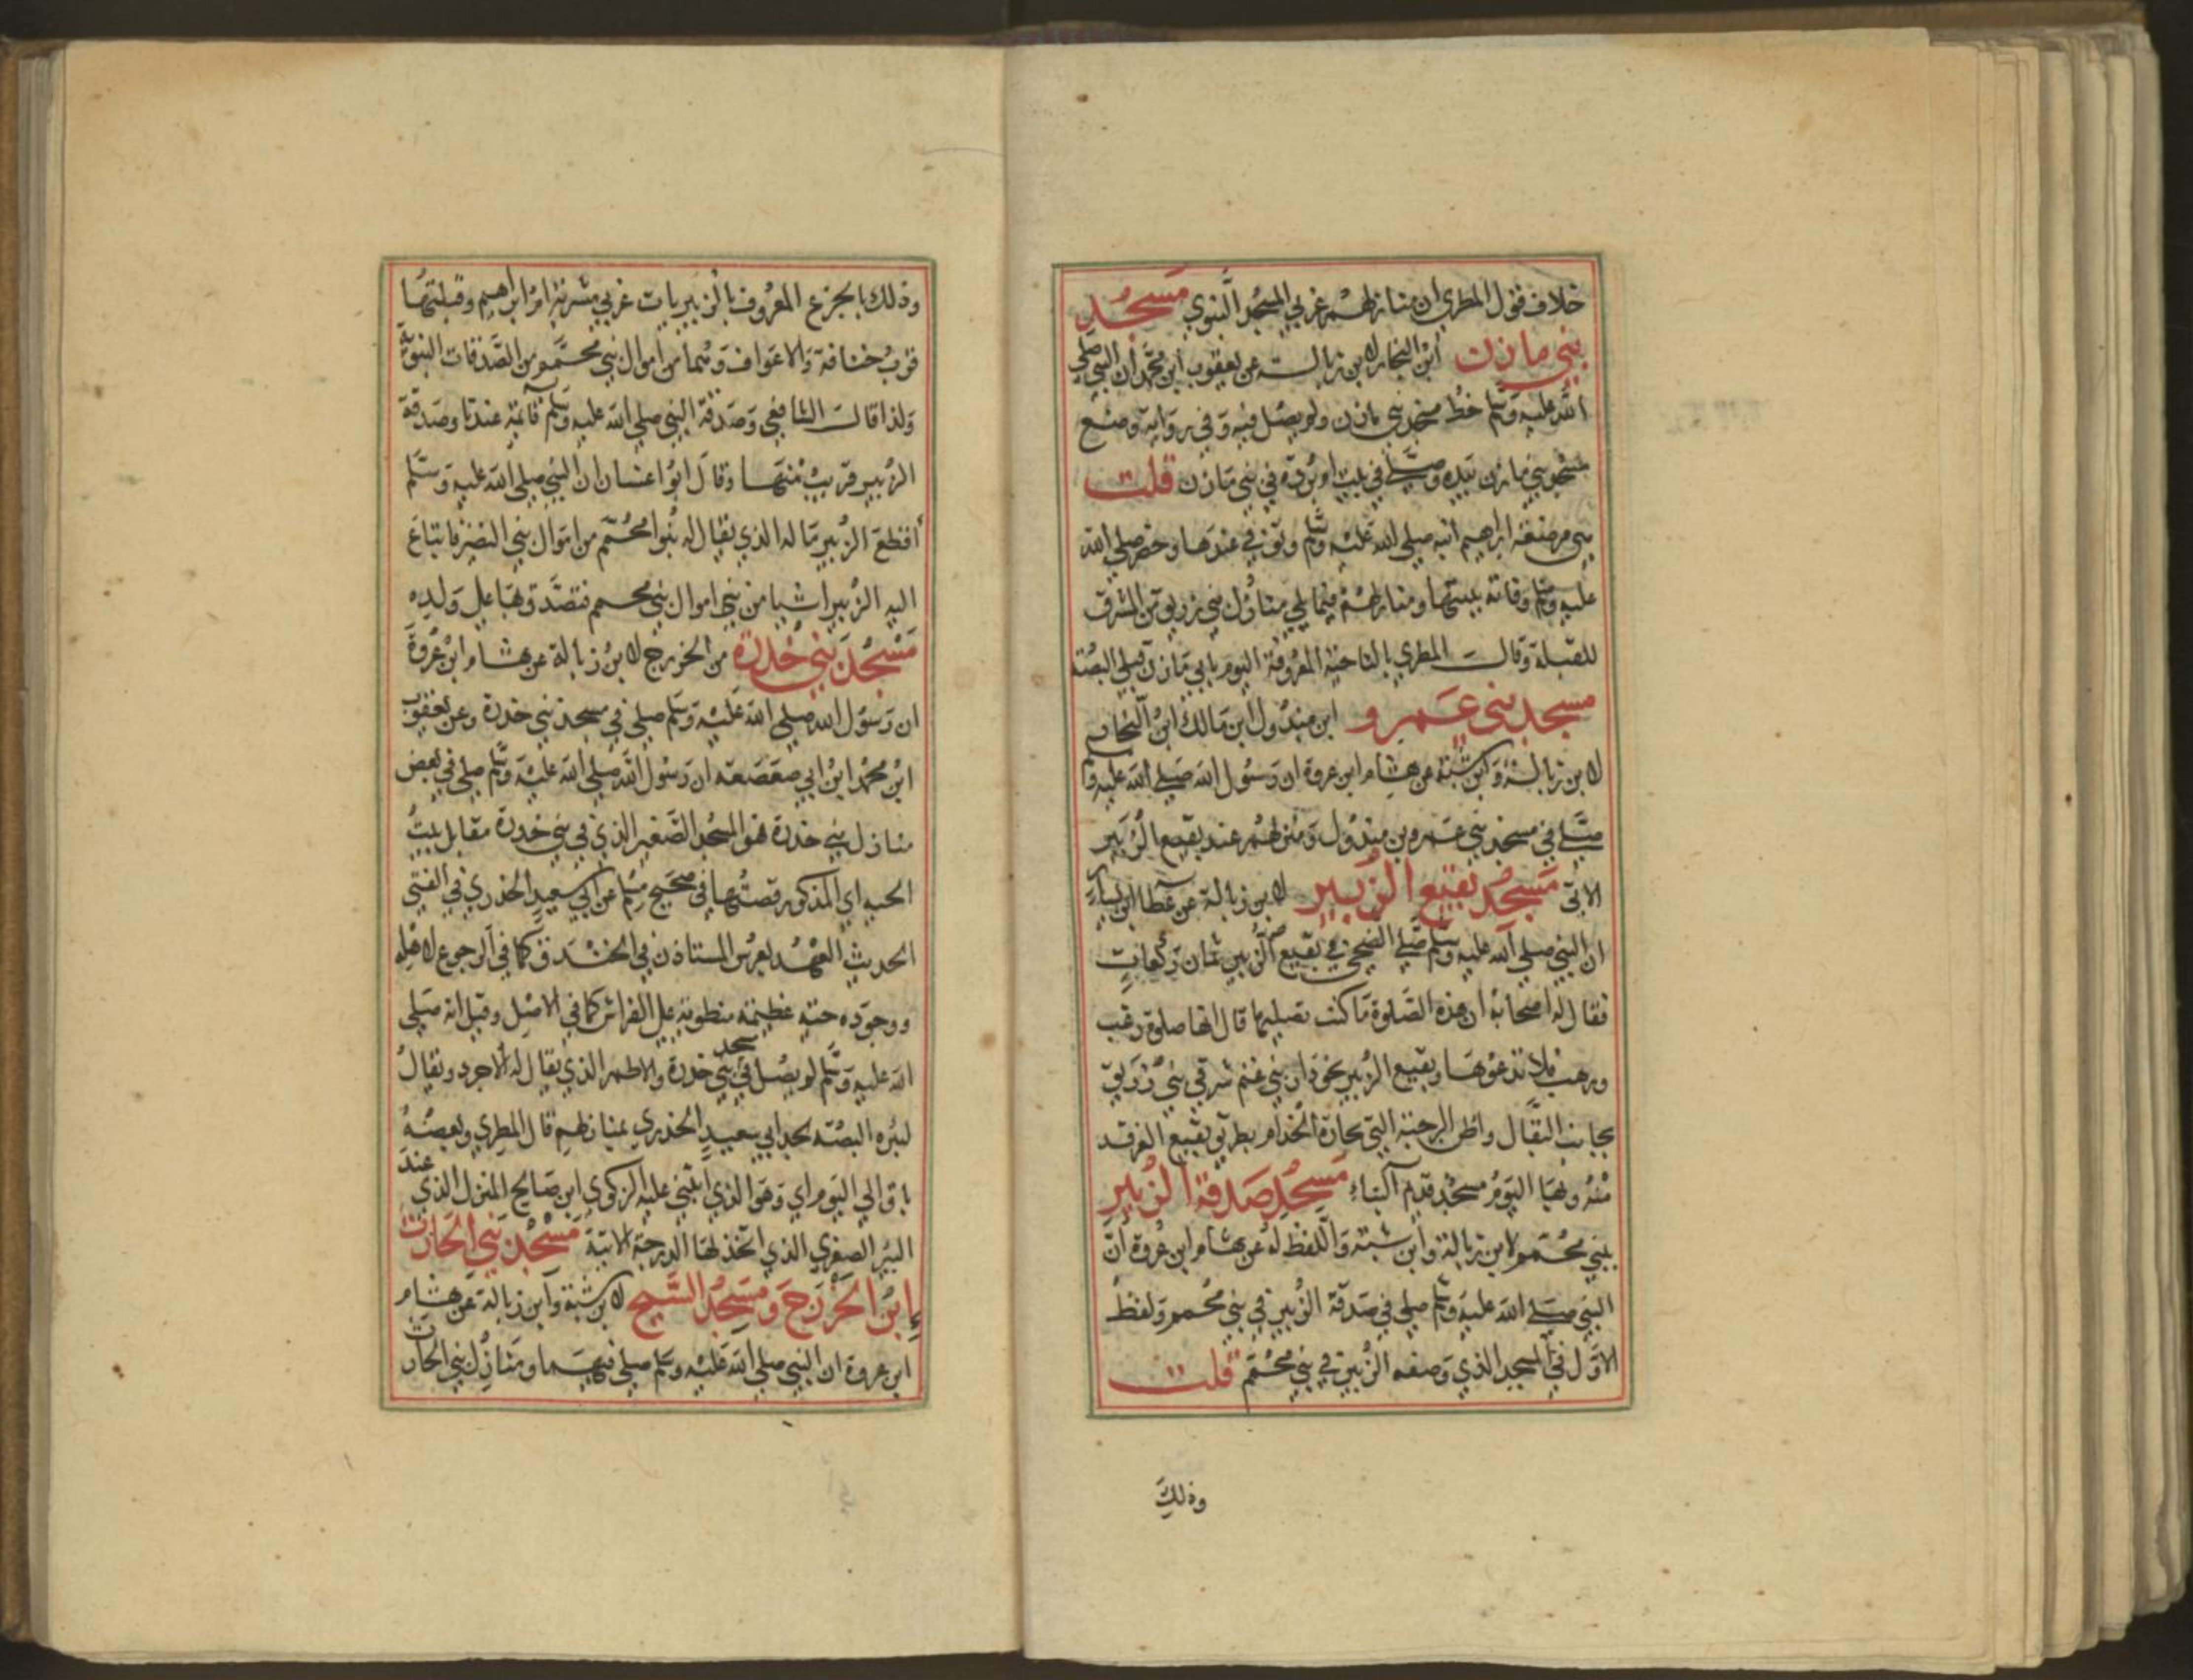 خلاف قول المطري ان منازلهم غربي المسجد النبوي مسجد
بني مازن ابن النجار لابن زبالة عن يعقوب ابن محمد ان النبي صلي
الله عليه وسلم خط مسجد بني مازن ولم يصل فيه وفي رواية وضع
مسجد بني مازن بيده وصلي في بيت ام بردة في بني مازن قلت
هي مرضعة ابراهيم ابنه صلي الله عليه وسلم وتوفي عندها وحضر صلي الله
عليه وسلم وفاته ببيتها ومنازلهم فيما يلي منازل بني زريق من الشرق
للقبلة وقالت المطري بالناحية المعروفة اليوم بابي مازن قبلي البصة
مسجد بني عمرو ابن مبذول ابن مالك ابن النجار
لابن زبالة وابن شبة عن هشام ابن عروة ان رسول الله صلي الله عليه وسلم
صلي في مسجد بني عمرو بن مبذول ومنزلهم عند بقيع الزبير
الاتي مسجد بقيع الزبير لابن زبالة عن عطا ابن يسار
ان النبي صلي الله عليه وسلم صلي الضحي في بقيع الزبير ثمان ركعات
فقال له اصحابه ان هذه الصلوة ما كنت تصليها قال انها صلوة رغب
ورهب فلا تدعوها وبقيع الزبير بجوار بني غنم شرقي بني زريق
بجانب البقال واظن الرحبة التي بحارة الخدام بطريق بقيع الغرقد
منه وبها اليوم مسجد قديم البناء مسجد صدقة الزبير
ببني محمم لابن زبالة وابن شبة واللفظ له عن هشام ابن عروة ان
النبي صلي الله عليه وسلم صلي في صدقة الزبير في بني محمم ولفظ
الاول في المسجد الذي وضعه الزبير في بني محمم قلت
وذلك
وذلك بالجزع المعروف بالزبيريات غربي مشربة ام ابراهيم وقبلتها
قرب خنافة والاعواف وهما من اموال بني محمم من الصدقات النبوية
ولذا قالت الشافعي وصدقة النبي صلي الله عليه وسلم قائمة عندنا وصدقة
الزبير قريب منها وقال ابو اغسان ان النبي صلي الله عليه وسلم
اقطع الزبير ماله الذي يقال له بنوا محمم من اموال بني النضير فابتاع
اليه الزبير اشيا من بني اموال بني محمم فتصدق بها علي ولده
مسجد بني خدرة من الخزرج لابن زبالة عن هشام ابن عروة
ان رسول الله صلي الله عليه وسلم صلي في مسجد بني خدرة وعن يعقوب
ابن محمد ابن ابي صعصعه ان رسول الله صلي الله عليه وسلم صلي في بعض
منازل بني خدرة فهو المسجد الصغير الذي في بني خدرة مقابل بيت
الحيه اي المذكور قصتها في صحيح مسلم عن ابي سعيد الخدري في الفتي
الحديث العهد بعرس المستاذن في الخندق كما في الرجوع لاهله
ووجوده حية عظيمة منطوية علي الفراش كما في الاصل وقيل انه صلي
الله عليه وسلم لم يصل في مسجد بني خدرة والاطم الذي يقال له الاجرد ويقال
لبئره البصة لجد ابي سعيد الخدري بمنازلهم قال المطري وبعضه
باق الي اليوم اي وهو الذي ابتني عليه الزكوي ابن صالح المنزل الذي عند
البير الصغري الذي اتخذ لها الدرجة الاتية مسجد بني الحارث
ابن الخزرج ومسجد السنح لابن شبة وابن زبالة عن هشام
ابن عروة ان النبي صلي الله عليه وسلم صلي فيهما ومنازل بني الحارث